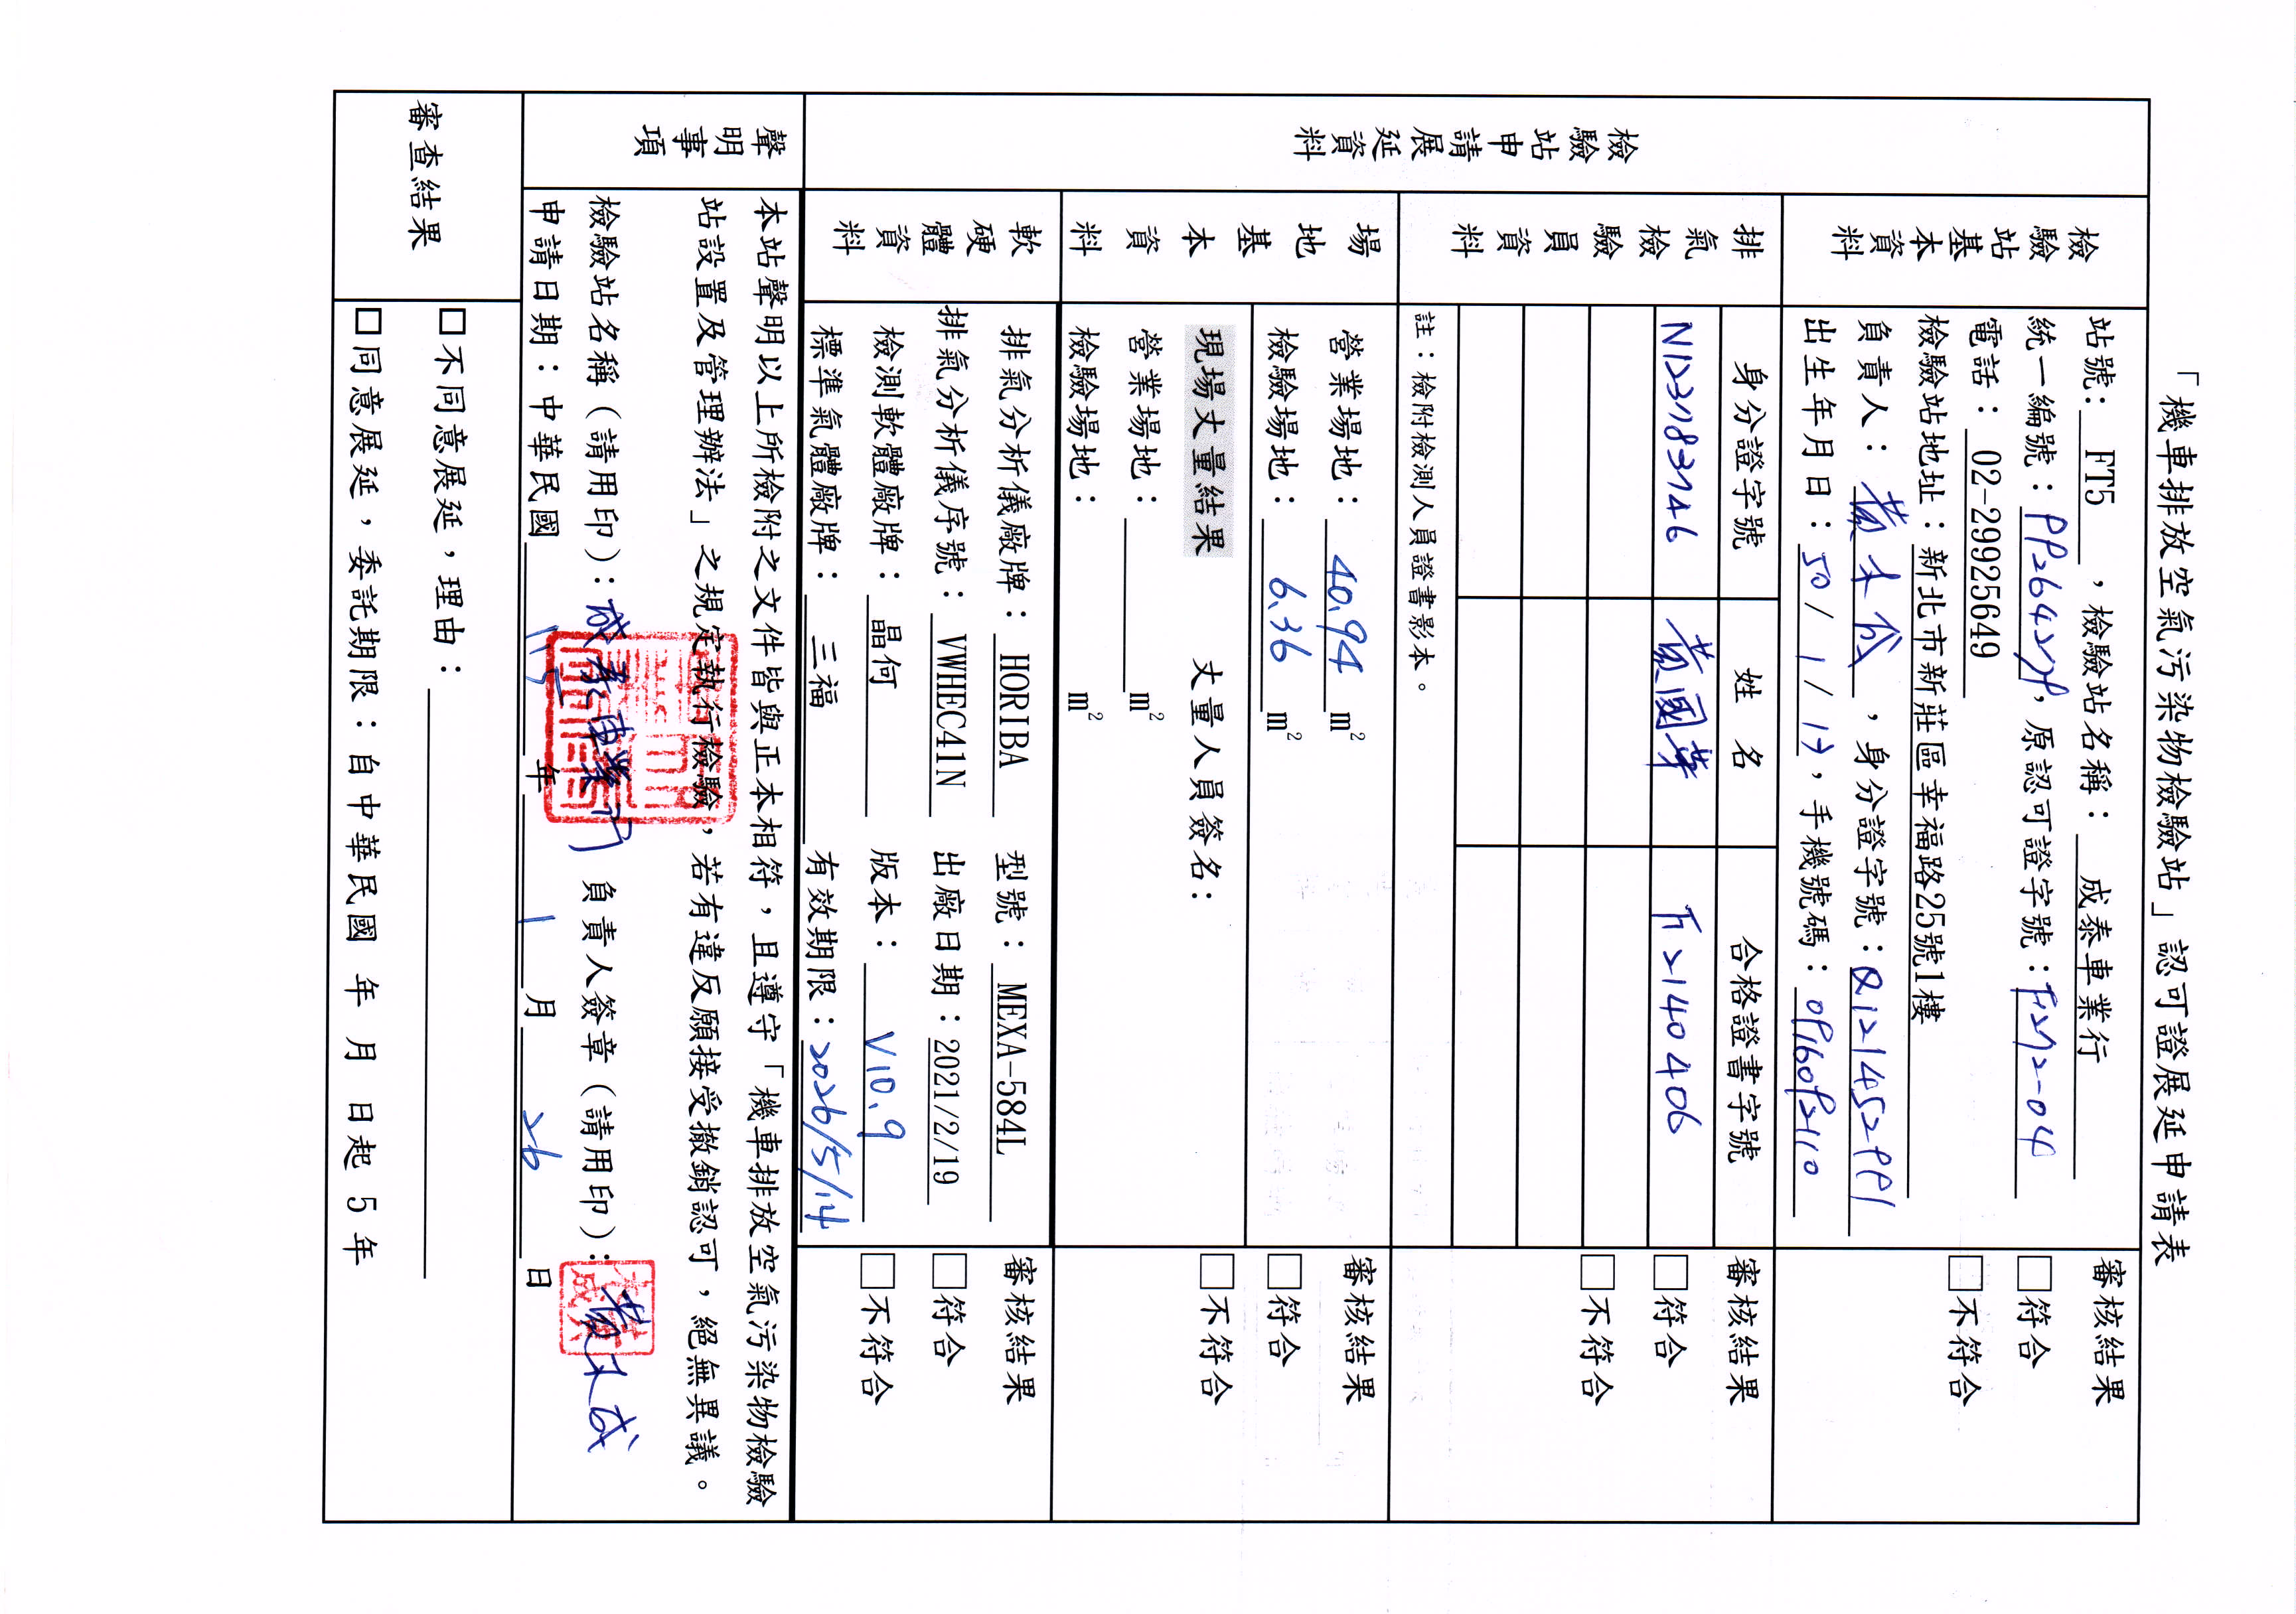 「機車排放空氣污染物檢驗站」認可證展延申請表
檢驗站申請展延資料
檢驗站基本資料
站號: FT5 ，檢驗站名稱： 成泰車業行
統一編號：99264229，原認可證字號：F272-04
電話：02-29925649
檢驗站地址：新北市新莊區幸福路25號1樓
負責人：黃天成，身分證字號：Q121452991
出生年月日：50/1/17，手機號碼：0916092110
審核結果
□符合
□不符合
排氣檢驗員資料
身分證字號 姓名 合格證書字號
N123783746 黃國華 F2140406
註：檢附檢測人員證書影本。
審核結果
□符合
□不符合
場地基本資料
營業場地：40.94 m²
檢驗場地：6.36 m²
現場丈量結果 丈量人員簽名：
營業場地： m²
檢驗場地： m²
審核結果
□符合
□不符合
軟硬體資料
排氣分析儀廠牌：HORIBA 型號：MEXA-584L
排氣分析儀序號：VWHEC41N 出廠日期：2021/2/19
檢測軟體廠牌：晶何 版本：V10.9
標準氣體廠牌：三福 有效期限：2026/5/14
審核結果
□符合
□不符合
聲明事項
本站聲明以上所檢附之文件皆與正本相符，且遵守「機車排放空氣污染物檢驗
站設置及管理辦法」之規定執行檢驗，若有違反願接受撤銷認可，絕無異議。
檢驗站名稱（請用印）：成泰車業行 負責人簽章（請用印）：黃天成
申請日期：中華民國 115 年 1 月 26 日
審查結果
□不同意展延，理由：
□同意展延，委託期限：自中華民國 年 月 日起 5 年